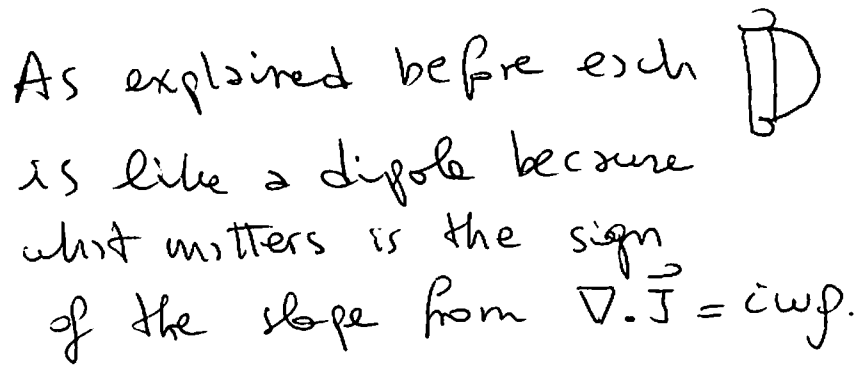 As explained before each
is like a dipole because
what matters is the sign
of the slope from ∇.J⃗ = iωρ.